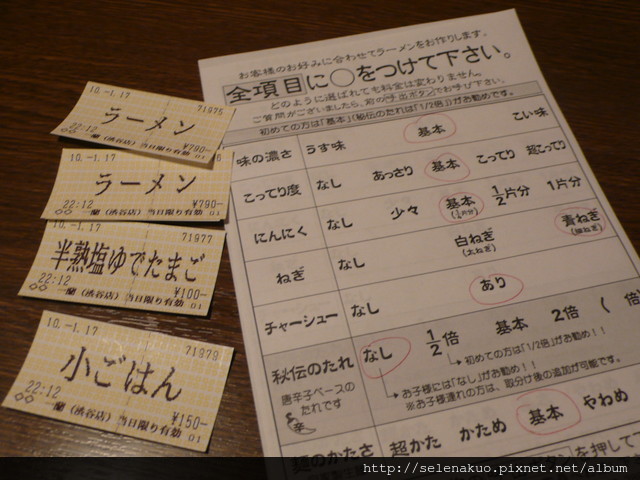 10.-1.17 71975
ラーメン
22:12 ¥790-
一蘭(渋谷店)当日限り有効 01
10.-1.17
ラーメン
22:12 ¥790-
一蘭(渋谷店)当日限り有効 01
10.-1.17 71977
半熟塩ゆでたまご
22:12 ¥100-
一蘭(渋谷店)当日限り有効 01
10.-1.17 71979
小ごはん
22:12 ¥150-
一蘭(渋谷店)当日限り有効 01
お客様のお好みに合わせてラーメンをお作りします。
全項目に○をつけて下さい。
どのように選ばれても料金は変わりません。
ご質問がございましたら、前の呼出ボタンでお呼び下さい。
初めての方は「基本」(秘伝のたれは「1/2倍」)がお勧めです。
味の濃さ うす味 基本 こい味
こってり度 なし あっさり 基本 こってり 超こってり
にんにく なし 少々 基本 1/2片分 1片分
ねぎ なし 白ねぎ 青ねぎ
チャーシュー なし あり
秘伝のたれ なし 1/2倍 基本 2倍 ( 倍
→初めての方は「1/2倍」がお勧め!!
唐辛子ベースの
たれです
→お子様には「なし」がお勧め!!
※お子様連れの方は、取分け後の追加が可能です。
麺のかたさ 超かた かため 基本 やわめ
http://selenakuo.pixnet.net/album